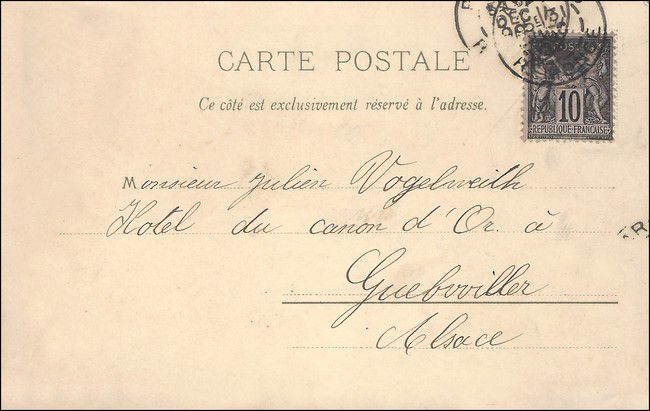 CARTE POSTALE
Ce côté est exclusivement réservé à l'adresse.
10
REPUBLIQUE FRANÇAISE
DEC
Monsieur Julien Vogelweith
Hotel du canon d'Or. à
Guebwiller
Alsace